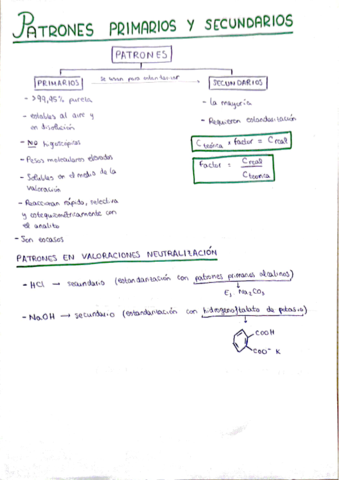 PATRONES PRIMARIOS Y SECUNDARIOS
PATRONES
se usan para estandarizar
PRIMARIOS
SECUNDARIOS
- >99,95% pureza
- estables al aire y
en disolución
- NO higroscópicos
- Pesos moleculares elevados
- Solubles en el medio de la
valoración
- Reaccionan rápida, selectiva
y estequiométricamente con
el analito
- Son escasos
- la mayoría
- Requieren estandarización
C teórica x factor = C real
factor = C real
C teórica
PATRONES EN VALORACIONES NEUTRALIZACIÓN
- HCl → secundario (estandarización con patrones primarios alcalinos)
Ej Na₂CO₃
- NaOH → secundario (estandarización con hidrogenoftalato de potasio)
COOH
COO⁻ K